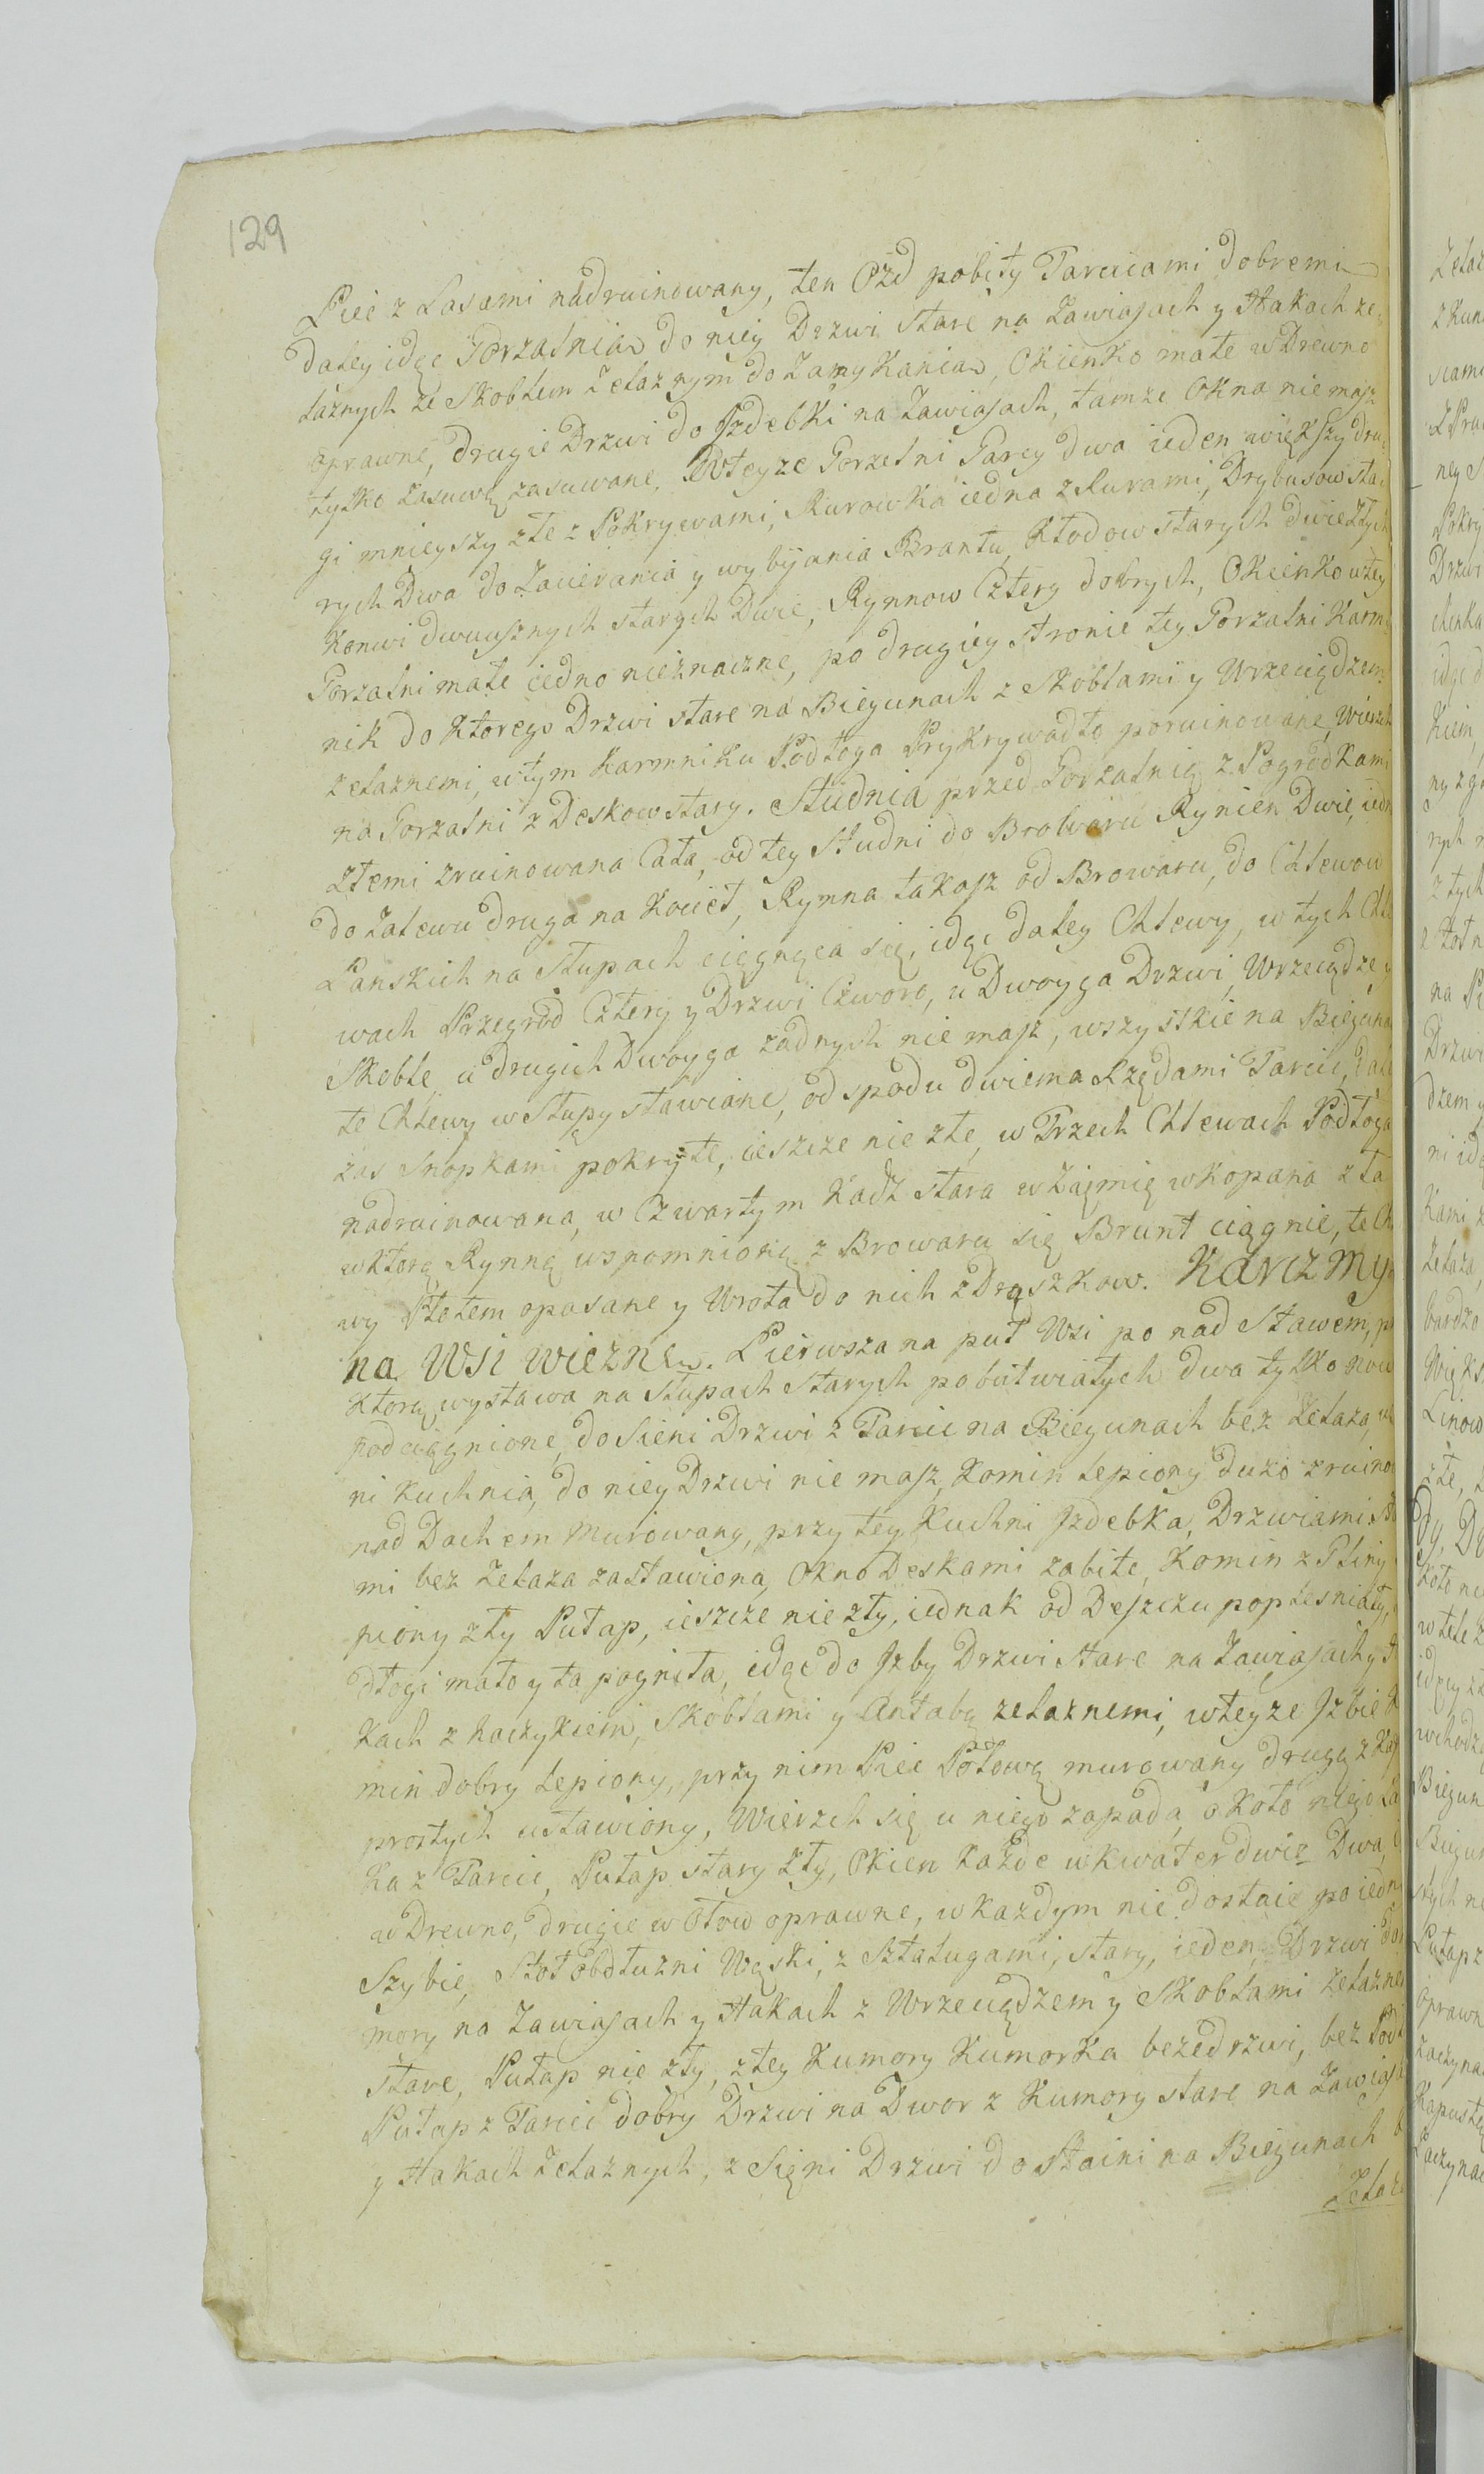 129
Piec z Lasami nadruinowany, ten Ozd pobity Tarcicami dobremi
daley idąc Gorzalnia do niey Drzwi stare na Zawiasach y Hakach że
laznych ze Skoblem Zelaznym do Zamykania, Okienko małe w Drewno
oprawne, drugie Drzwi do Jzdebki na Zawiasach, tamze Okna niemasz
tylko zasuwą zasuwane. Wteyze Gorzelni Garcy dwa ieden większy dru
gi mnieyszy złe z Pokrywami, Rurowka iedna z Rurami, Drybusow sta
rych Dwa do Zacierania y wybijania Brantu, Kłodow starych dwie złych
Konwi dwuusznych starych Dwie, Rynnow Cztery dobrych, Okienko wtey
Gorzalni małe iedno nieznaczne, po drugiey stronie tey Gorzalni Karm
nik do Ktorego Drzwi stare na Biegunach z Skoblami y Wrzeciądzem
zelaznemi, wtym Karmniku Podłoga Prykrywadło poruinowane, Wierzch
na Gorzalni z Deskow stary. Studnia przed Gorzalnią z Pogrodkami
złemi zruinowana Cała, od tey Studni do Browaru Rynien Dwie, iedn
do Zalewu druga na Kocieł, Rynna takasz od Browaru, do Chlewow
Panskich na Słupach ciągnąca się, idąc daley Chlewy, w tych Chle
wach Przegrod Cztery y Drzwi Czworo, u Dwoyga Drzwi Wrzeciądze y
Skoble, u drugich Dwoyga zadnych nie masz, wszystkie na Biegunach
te Chlewy w Słupy stawiane, od spodu dwiema Rzędami Tarcic, dali
zas Snopkami pokryte, ieszcze nie złe, w Trzech Chlewach Podłoga
nadruinowana, w Czwartym Kadz stara w Ziemię wkopana zła
wktorą Rynną wspomnioną z Browaru się Brunt ciągnie, te Ch
wy Płotem opasane y Wrota do nich z Draszkow. Karczmy
na Wsi wiezne. Pierwsza na puł Wsi po nad Stawem, p
ktorą wystawa na Słupach Starych pobutwiałych dwa tylko now
podciągnione, do Sieni Drzwi z Tarcic na Biegunach bez Zelaza, w
ni Kuchnia, do niey Drzwi nie masz, Komin lepiony duzo zruino
nad Dachem Murowany, przy tey Kuchni Jzdebka, Drzwiami
mi bez Zelaza zastawiona, Okno Deskami zabite, Komin z Gliny
piony zły Pułap, ieszcze nie zły, iednak od Deszczu poplesniały,
dłogi mało y ta pogniła, idąc do Jzby Drzwi stare na Zawiasach y H
kach z haczykiem, Skoblami y Antabą zelaznemi, wteyze Jzbie K
min dobry lepiony, przy nim Piec Połową murowany drugą z Kaf
prostych ustawiony, Wierzch się u niego zapada, około niego Ła
ka z Tarcic, Pułap stary zły, Okien kazde w kwater dwie Dwa,
w Drewno, drugie w Ołow oprawne, w kazdym nie dostaie po iedn
Szybie, Stoł obdłuzni Wąski, z Sztalugami, stary, ieden, Drzwi do
mory na Zawiasach y Hakach z Wrzeciądzem y Skoblami zelazne
stare, Pułap nie zły, z tey Kumory Kumorka bezedrzwi, bez Podł
Pułap z Tarcic dobry Drzwi na Dwor z Kumory stare na Zawiasa
y Hakach Zelaznych, z Sieni Drzwi do Staini na Biegunach b
Zelaz